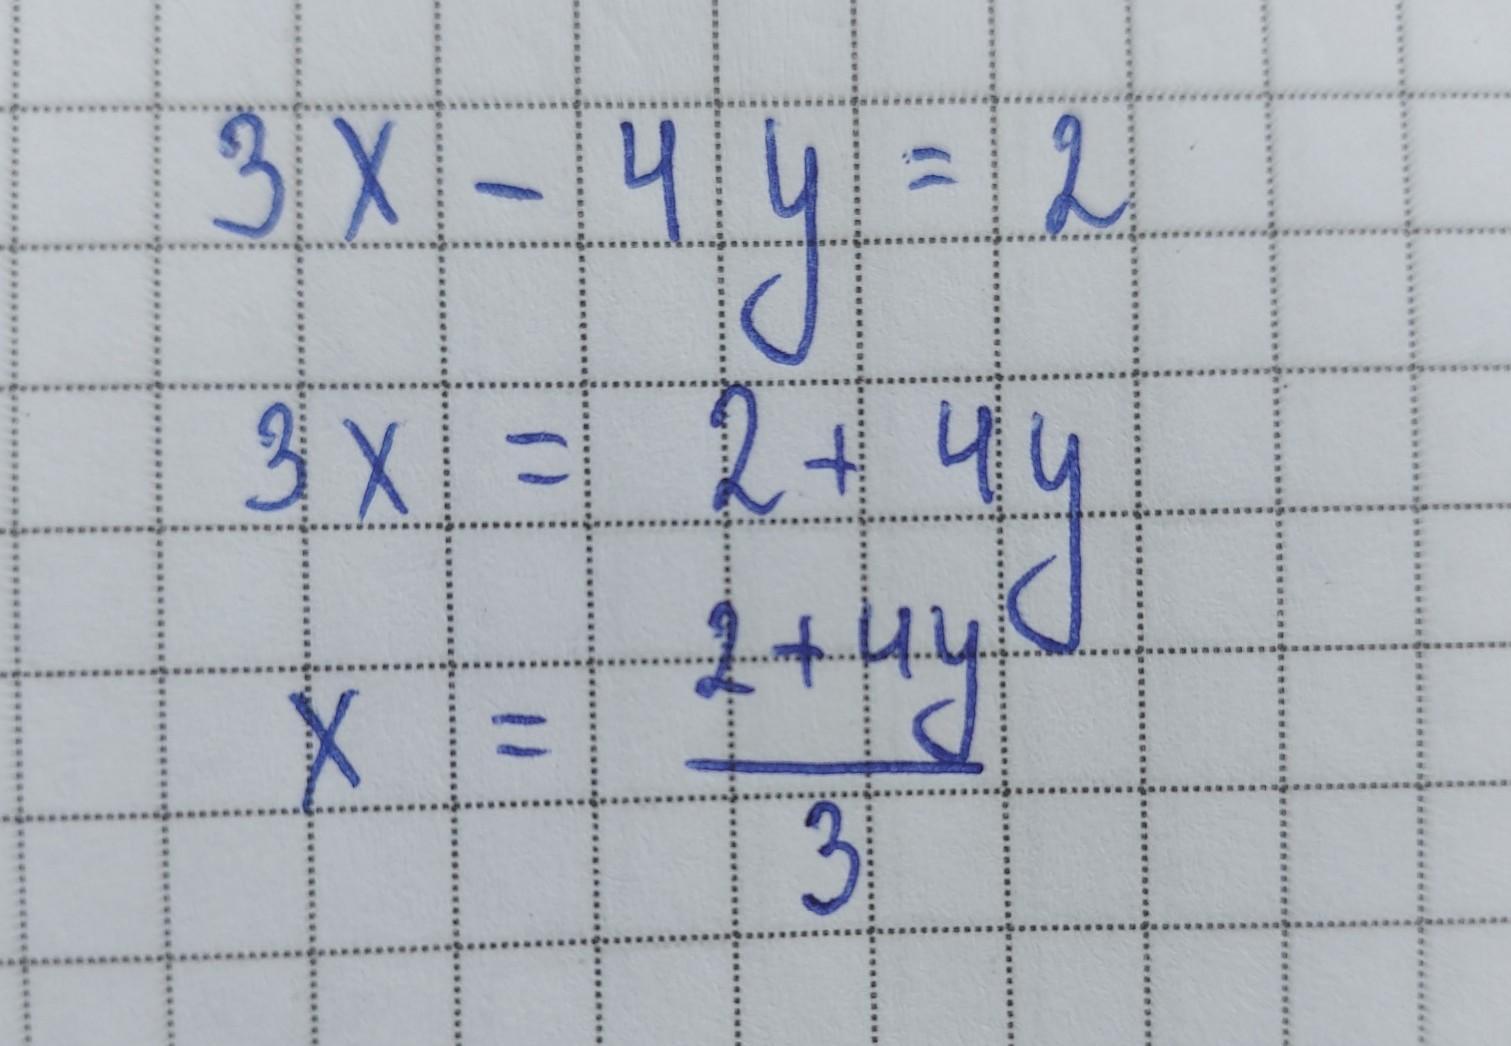 3x - 4y = 2
3x = 2 + 4y
x = (2 + 4y)/3